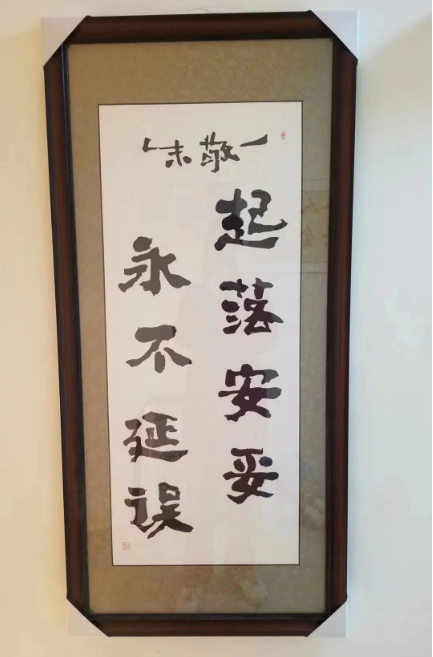 一敬未卜
起落安妥
永不延误